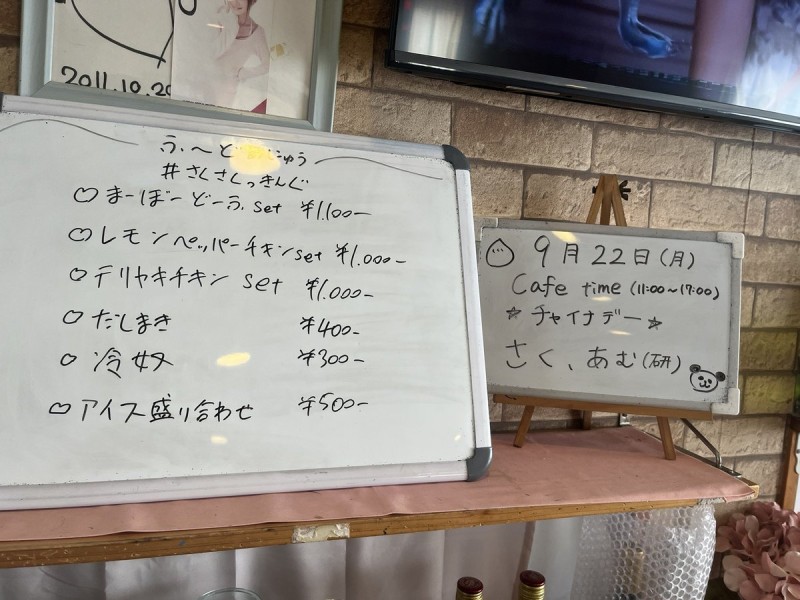 2011.10.20
#さくさくっきんぐ
♡ まーぼーどーふ set ¥1.100-
♡ レモンペッパーチキン set ¥1.000-
♡ テリヤキチキン set ¥1.000-
♡ だしまき ¥400-
♡ 冷奴 ¥300-
♡ アイス盛り合わせ ¥500-
9月22日(月)
Cafe time (11:00~17:00)
☆ チャイナデー ☆
さく、あむ(研)